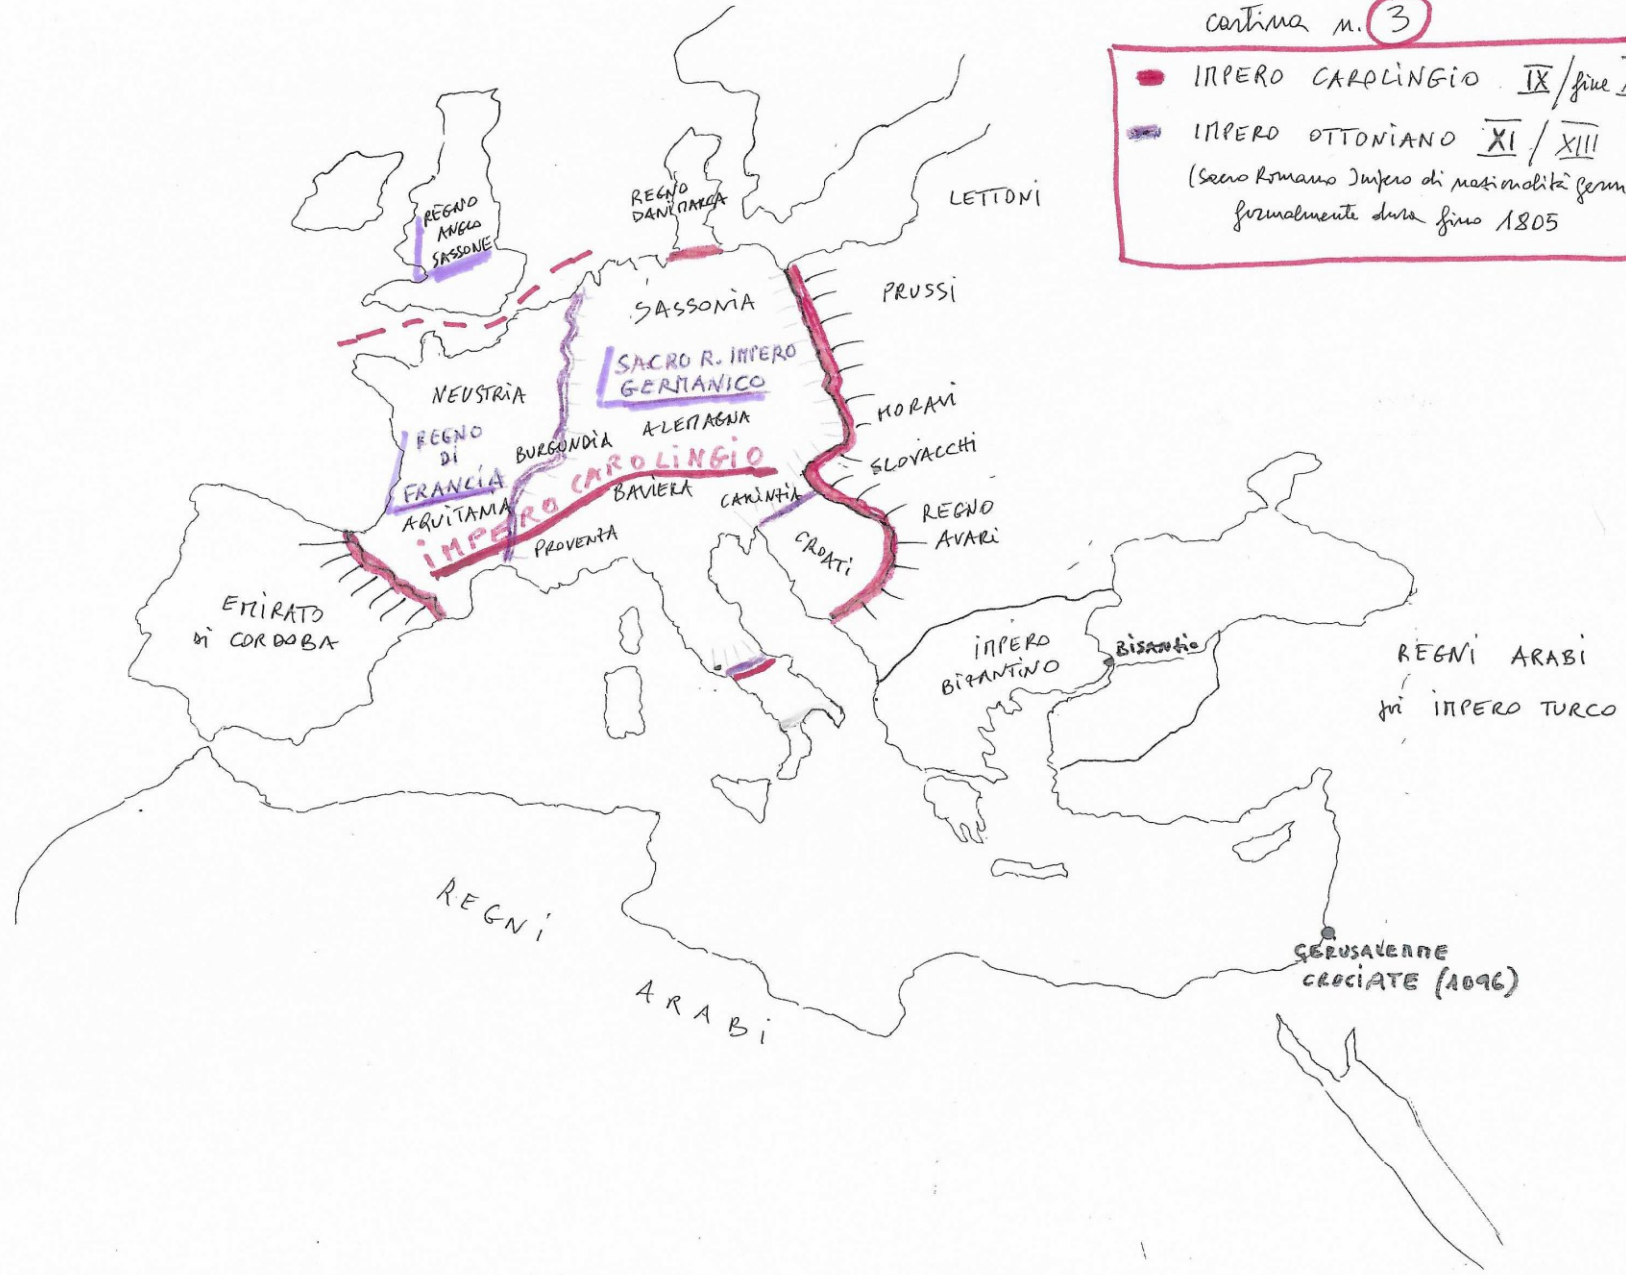 cartina n. 3
IMPERO CAROLINGIO IX/fine
IMPERO OTTONIANO XI / XIII
(Sacro Romano Impero di nazionalità germ
formalmente dura fino 1805
REGNO
ANGLO
SASSONE
REGNO
DANIMARCA
LETTONI
SASSONIA
PRUSSI
SACRO R. IMPERO
GERMANICO
NEUSTRIA
ALEMAGNA
MORAVI
REGNO
DI
FRANCIA
BURGUNDIA
IMPERO CAROLINGIO
SLOVACCHI
BAVIERA
CARINTIA
AQUITANIA
PROVENZA
REGNO
AVARI
CROATI
EMIRATO
DI CORDOBA
IMPERO
BIZANTINO
BISANZIO
REGNI ARABI
poi IMPERO TURCO
REGNI
ARABI
GERUSALEMME
CROCIATE (1096)